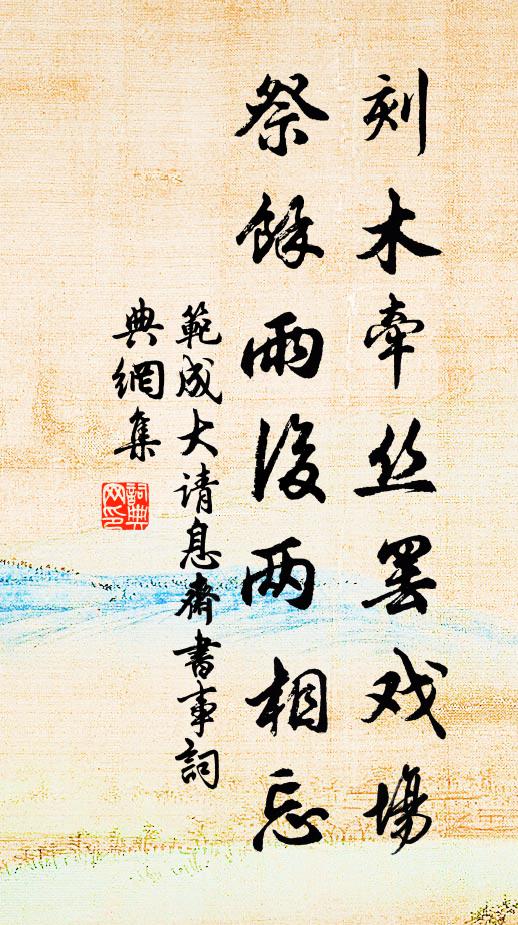 刻木牵丝罢戏场
祭馀雨后两相忘
範成大请息齋書事詞
典網集
詞典
网印